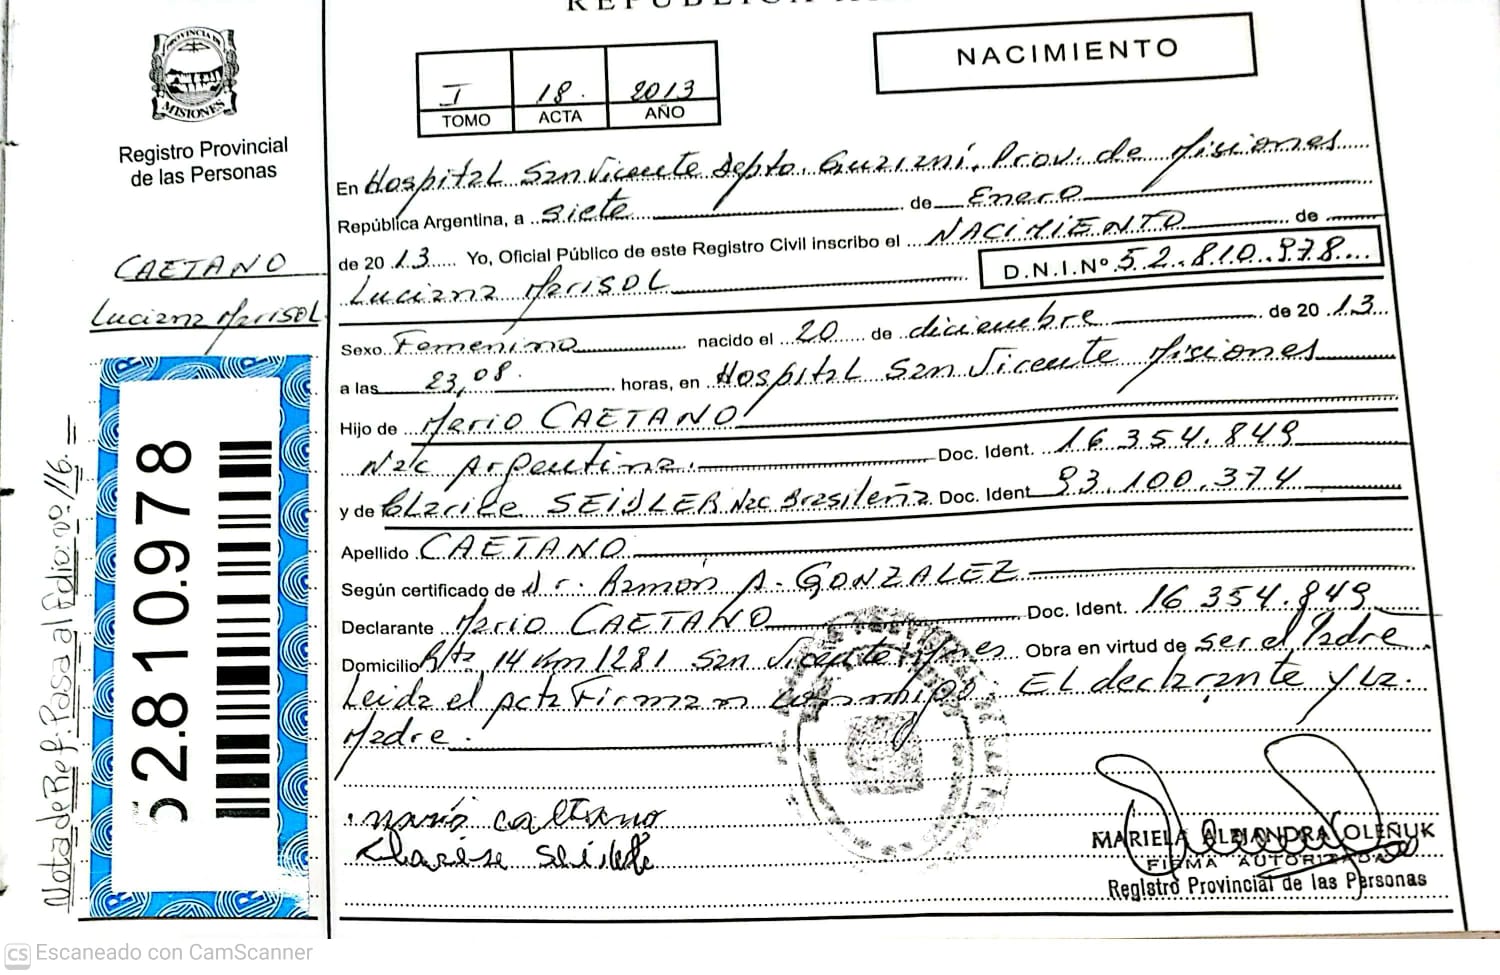 PROVINCIA DE
MISIONES
Registro Provincial
de las Personas
CAETANO
Luciana Marisol
52.810.978
Nota de Ref: Pasa al folio: nº: 116. =
NACIMIENTO
I 18. 2013
TOMO ACTA AÑO
En Hospital San Vicente Depto. Guaraní. Prov. de Misiones
República Argentina, a siete de Enero
de 2013 Yo, Oficial Público de este Registro Civil inscribo el NACIMIENTO de
Luciana Marisol D.N.I.Nº 52.810.978
Sexo Femenino nacido el 20 de diciembre de 2013
a las 23,08. horas, en Hospital San Vicente Misiones
Hijo de Mario CAETANO
Nac Argentina. Doc. Ident. 16.354.849
y de Clarice SEIDLER Nac Brasileña Doc. Ident. 93.100.374
Apellido CAETANO
Según certificado de Dr. Ramón A. GONZALEZ
Declarante Mario CAETANO Doc. Ident. 16 354.849
Domicilio Rta 14 Km 1281 San Vicente Mnes Obra en virtud de ser el Padre
Leida el acta Firman conmigo. El declarante y La
Madre.
mario caetano
MARIELA ALEJANDRA OLEÑUK
FIRMA AUTORIZADA
Registro Provincial de las Personas
CS Escaneado con CamScanner